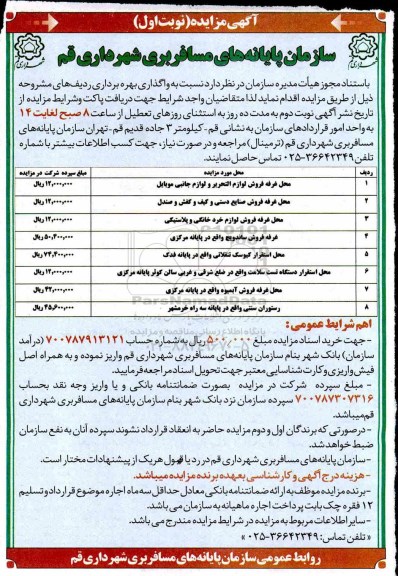 آگهی مزایده (نوبت اول)
سازمان پایانه‌های مسافربری شهرداری قم
باستناد مجوز هیأت مدیره سازمان در نظر دارد نسبت به واگذاری بهره برداری ردیف‌های مشروحه
ذیل از طریق مزایده اقدام نماید لذا متقاضیان واجد شرایط جهت دریافت پاکت و شرایط مزایده از
تاریخ نشر آگهی نوبت دوم به مدت ده روز به استثنای روزهای تعطیل از ساعت ۸ صبح لغایت ۱۴
به واحد امور قراردادهای سازمان به نشانی قم - کیلومتر ۳ جاده قدیم قم - تهران سازمان پایانه‌های
مسافربری شهرداری قم (ترمینال) مراجعه و در صورت نیاز، جهت کسب اطلاعات بیشتر با شماره
تلفن ۳۶۶۴۲۳۴۹-۰۲۵ تماس حاصل نمایند.
ردیف محل مورد مزایده مبلغ سپرده شرکت در مزایده
۱ محل غرفه فروش لوازم التحریر و لوازم جانبی موبایل ۱۲,۰۰۰,۰۰۰ ریال
۲ محل غرفه فروش صنایع دستی و کیف و کفش و صندل ۱۲,۰۰۰,۰۰۰ ریال
۳ محل غرفه فروش لوازم خرد خانگی و پلاستیکی ۱۲,۰۰۰,۰۰۰ ریال
۴ غرفه فروش ساندویچ واقع در پایانه مرکزی ۵۰,۴۰۰,۰۰۰ ریال
۵ محل استقرار کیوسک تنقلاتی واقع در پایانه فدک ۷۴,۴۰۰,۰۰۰ ریال
۶ محل استقرار دستگاه تست سلامت واقع در ضلع شرقی و غربی سالن کوثر پایانه مرکزی ۱۲,۰۰۰,۰۰۰ ریال
۷ محل غرفه فروش آبمیوه واقع در پایانه مرکزی ۴۲,۰۰۰,۰۰۰ ریال
۸ رستوران سنتی واقع در پایانه سه راه خرمشهر ۴۵,۶۰۰,۰۰۰ ریال
ParsNamadData
پایگاه اطلاع رسانی مناقصه و مزایده
اهم شرایط عمومی:
- جهت خرید اسناد مزایده مبلغ ۵۰۰,۰۰۰ ریال به شماره حساب ۷۰۰۷۸۷۹۱۳۱۲۱ (درآمد
سازمان) بانک شهر بنام سازمان پایانه‌های مسافربری شهرداری قم واریز نموده و به همراه اصل
فیش واریزی و کارت شناسایی معتبر جهت تحویل اسناد مراجعه فرمایید.
- مبلغ سپرده شرکت در مزایده بصورت ضمانتنامه بانکی و یا واریز وجه نقد بحساب
۷۰۰۷۸۷۳۰۷۳۱۶ سپرده سازمان نزد بانک شهر بنام سازمان پایانه‌های مسافربری شهرداری
قم میباشد.
- در صورتی که برندگان اول و دوم مزایده حاضر به انعقاد قرارداد نشوند سپرده آنان به نفع سازمان
ضبط خواهد شد.
- سازمان پایانه‌های مسافربری شهرداری قم در رد یا قبول هر یک از پیشنهادات مختار است.
- هزینه درج آگهی و کارشناسی بعهده برنده مزایده میباشد.
- برنده مزایده موظف به ارائه ضمانتنامه بانکی معادل حداقل سه ماه اجاره موضوع قرارداد و تسلیم
۱۲ فقره چک بابت پرداخت اجاره ماهیانه به سازمان می باشد.
- سایر اطلاعات مربوط به مزایده در شرایط مزایده مندرج می باشد.
« تلفن تماس: ۳۶۶۴۲۳۴۹-۰۲۵ »
روابط عمومی سازمان پایانه‌های مسافربری شهرداری قم